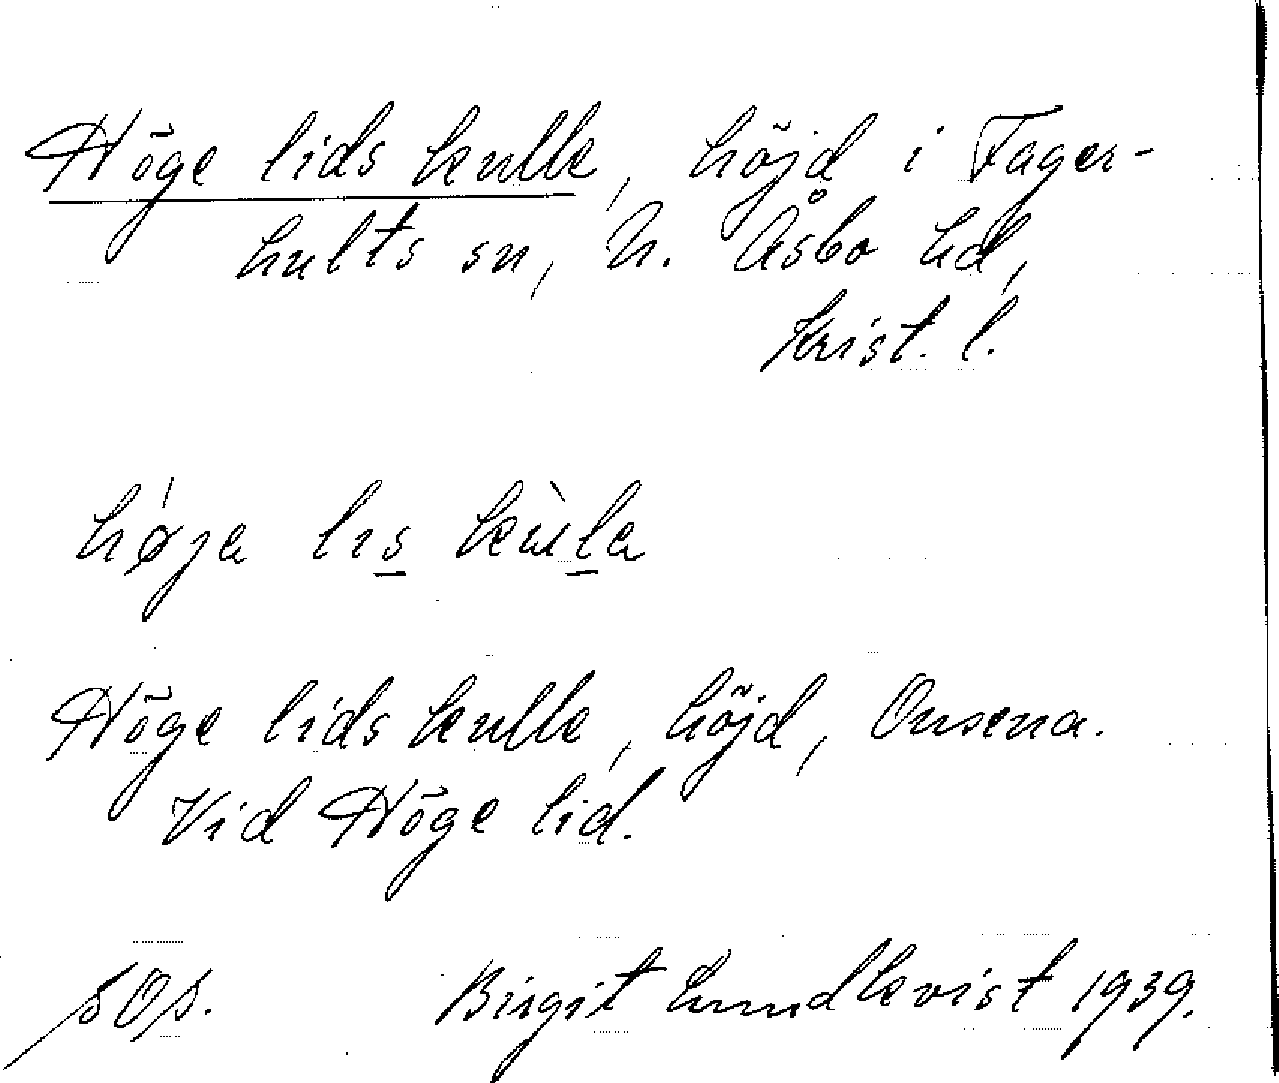 Höge lids kulle, höjd i Fager-
hults sn, N. Åsbo hd,
Krist. l.
høja lis kùla
Höge lids kulle, höjd, Onsena.
Vid Höge lid.
SOS. Birgit Lundkvist 1939.